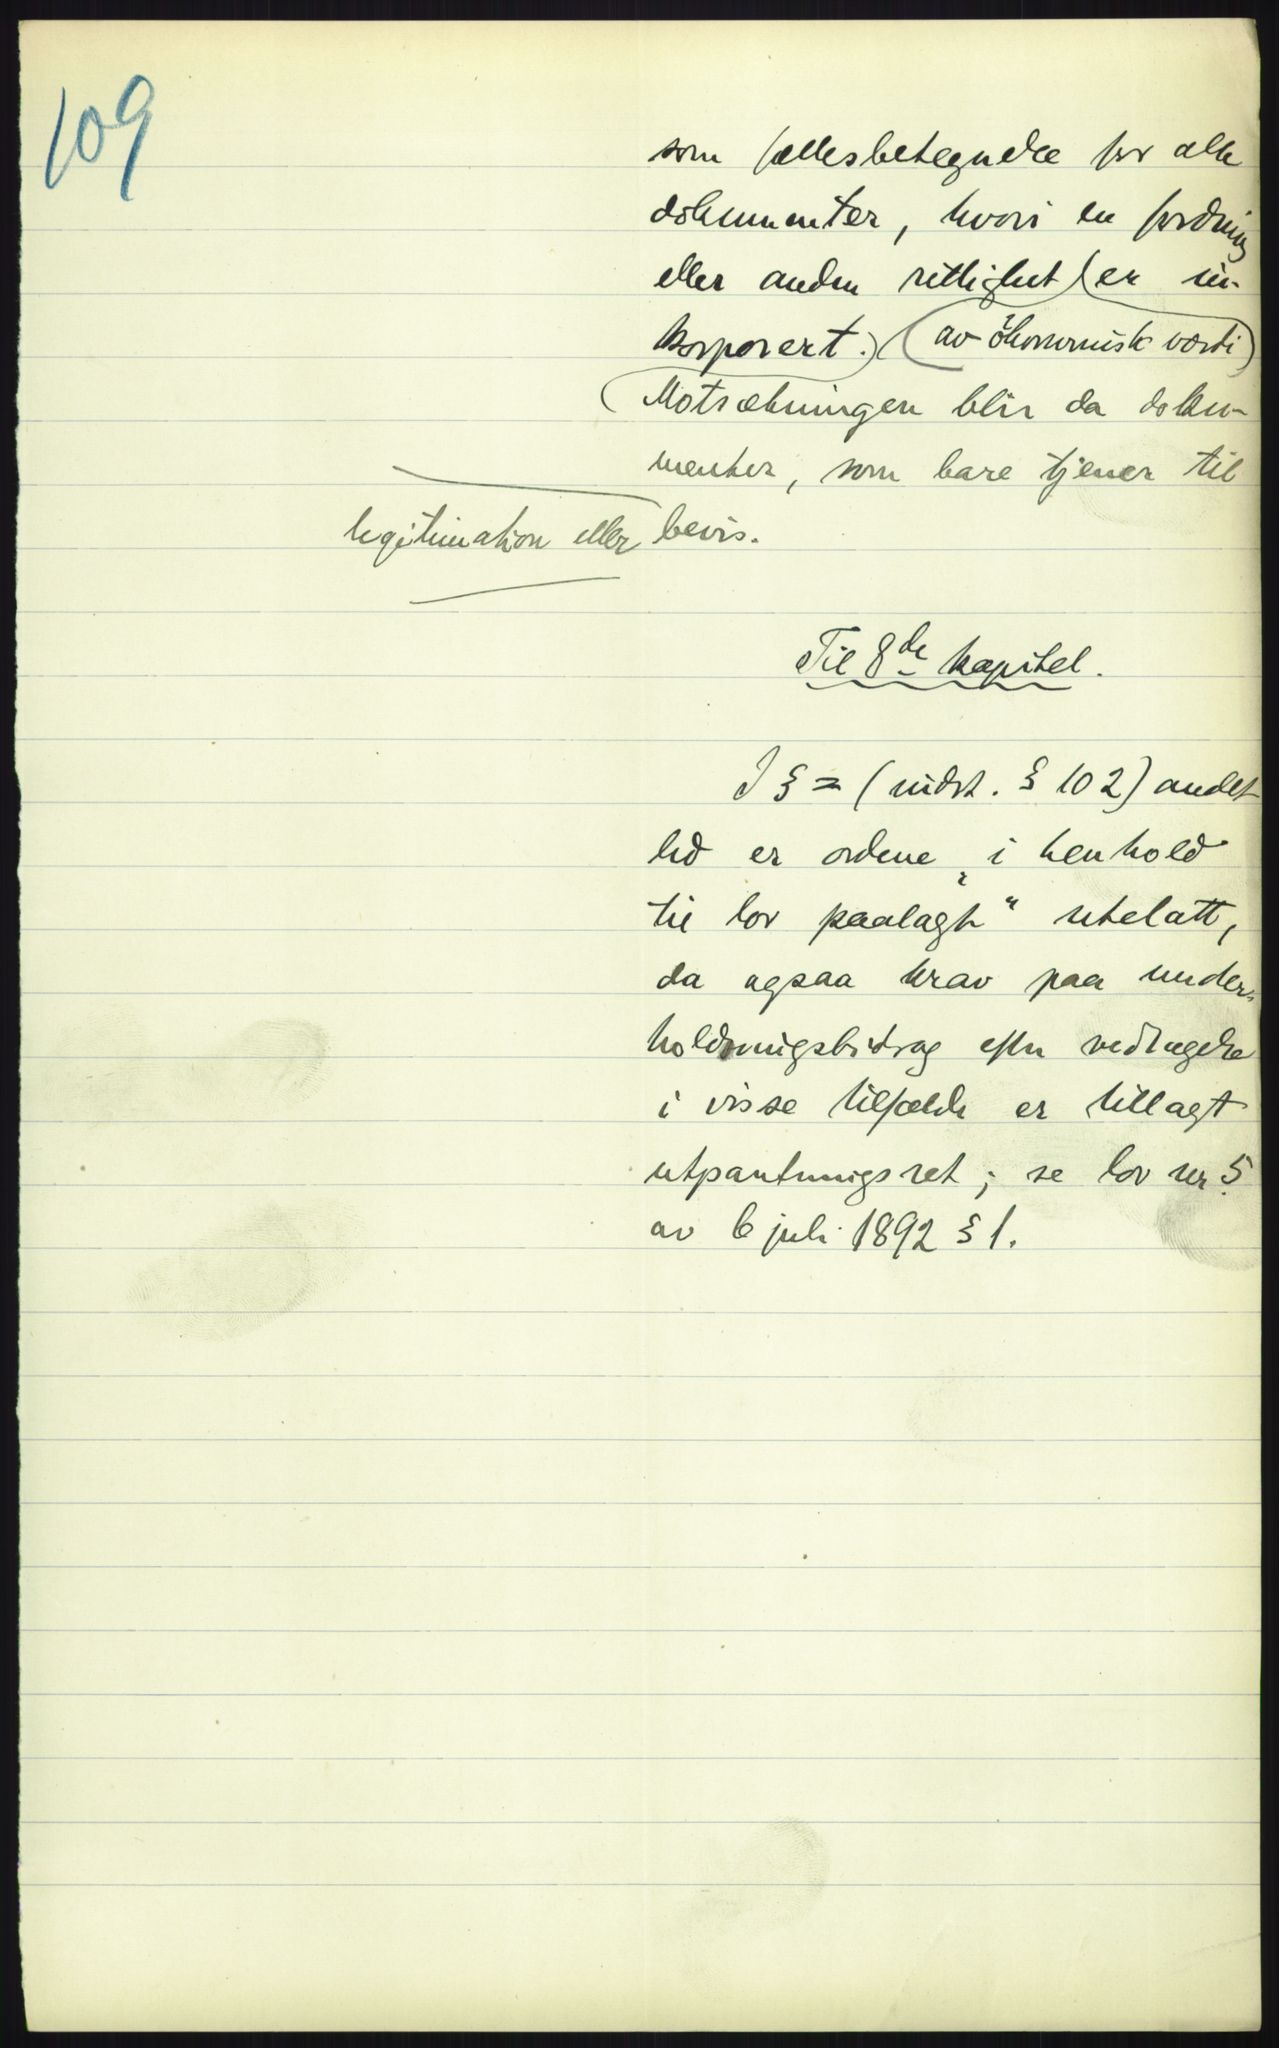 109
som fællesbetegnelse for alle
dokumenter, hvori en fordring
eller anden rettighet (er in-
korporert.) (av økonomisk værdi)
(Motsætningen blir da doku-
menter, som bare tjener til
legitimation eller bevis.
Til 8de kapitel.
I § = (indst. § 102) andet
led er ordene „i henhold
til lov paalagt“ utelatt,
da ogsaa krav paa under-
holdningsbidrag efter vedtagelse
i visse tilfælde er tillagt
utpantningsret; se lov nr 5
av 6 juli 1892 § 1.